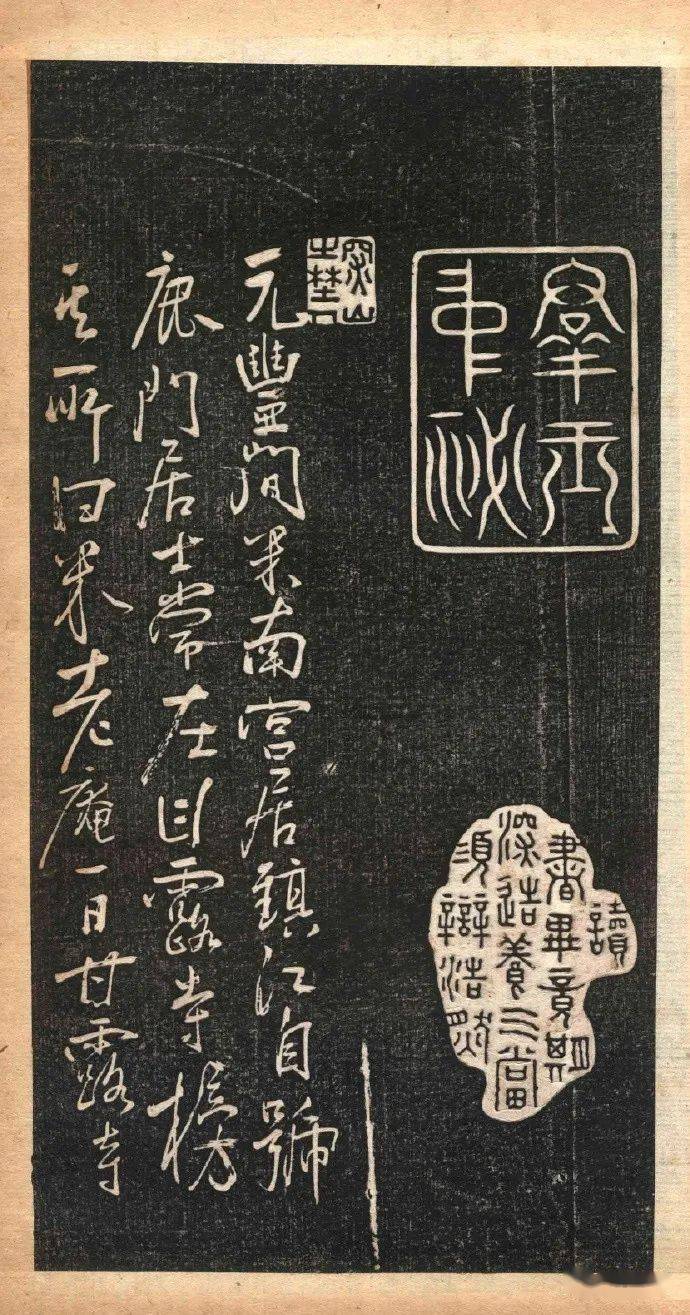 羣玉
中祕
讀
書畢竟期
深造養气當
須辯浩然
元豐間米南宮居鎮江自號
鹿門居士常在甘露寺榜
其所曰米老庵一日甘露寺